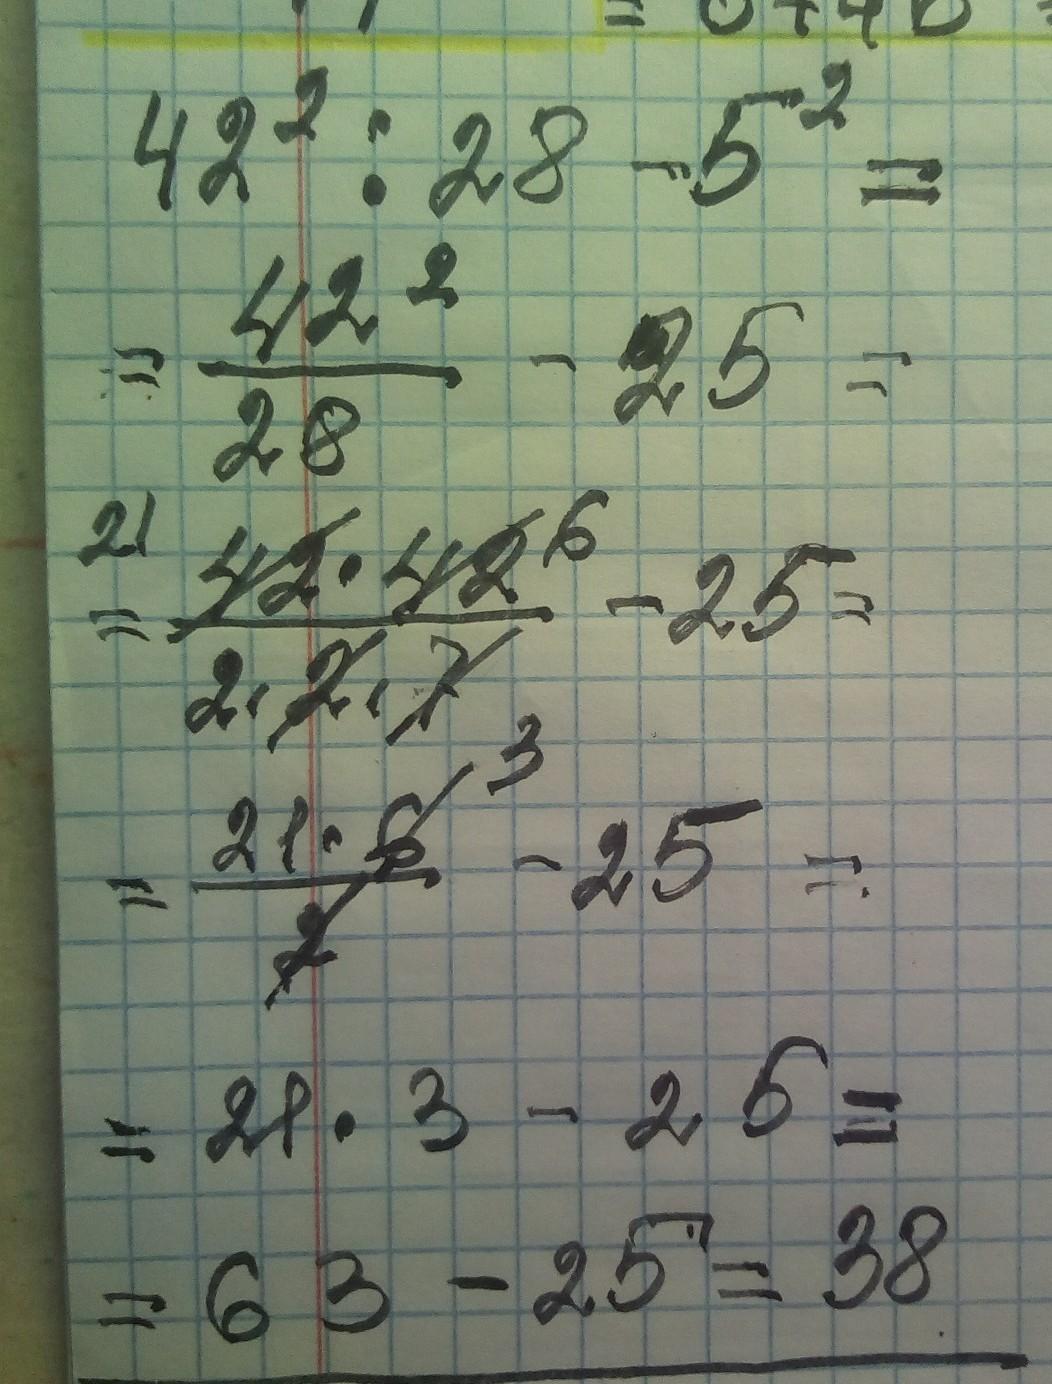 42² : 28 - 5² =
= 42²/28 - 25 =
21 6
= 42·42/2·2·7 - 25 =
3
= 21·6/2 - 25 =
= 21·3 - 25 =
= 63 - 25 = 38